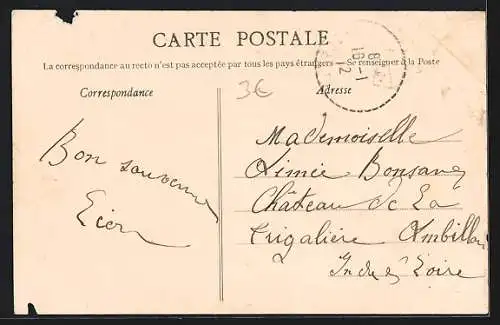 CARTE POSTALE
La correspondance au recto n'est pas acceptée par tous les pays étrangers — Se renseigner à la Poste
Correspondance
Adresse
3€
8 - 1
12
Bon souvenir
Mademoiselle
Aimée
Château de La
Trigalière Ambillou
Indre et Loire